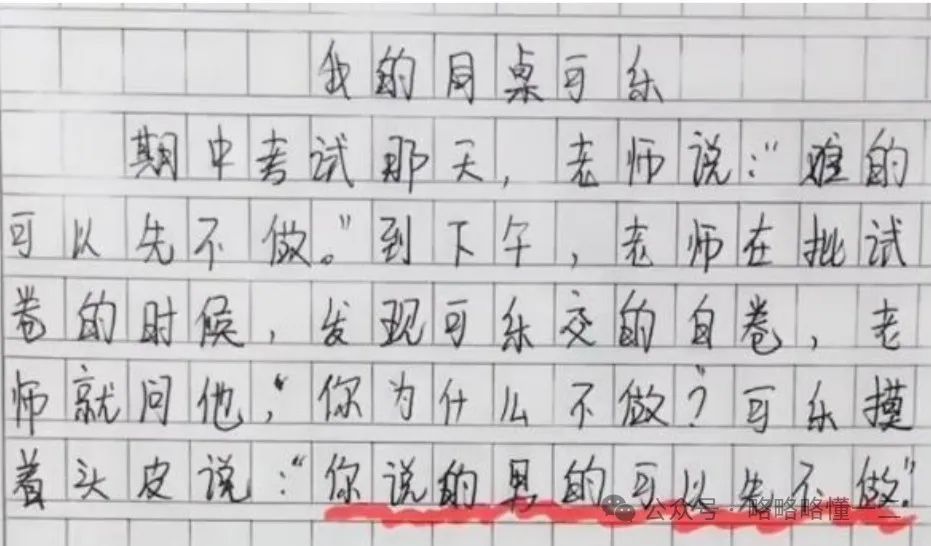 我的同桌可乐
期中考试那天，老师说：“难的
可以先不做。”到下午，老师在批试
卷的时候，发现可乐交的自卷，老
师就问他，“你为什么不做？”可乐摸
着头皮说：“你说的男的可以先不做”
公众号·略略略懂一二